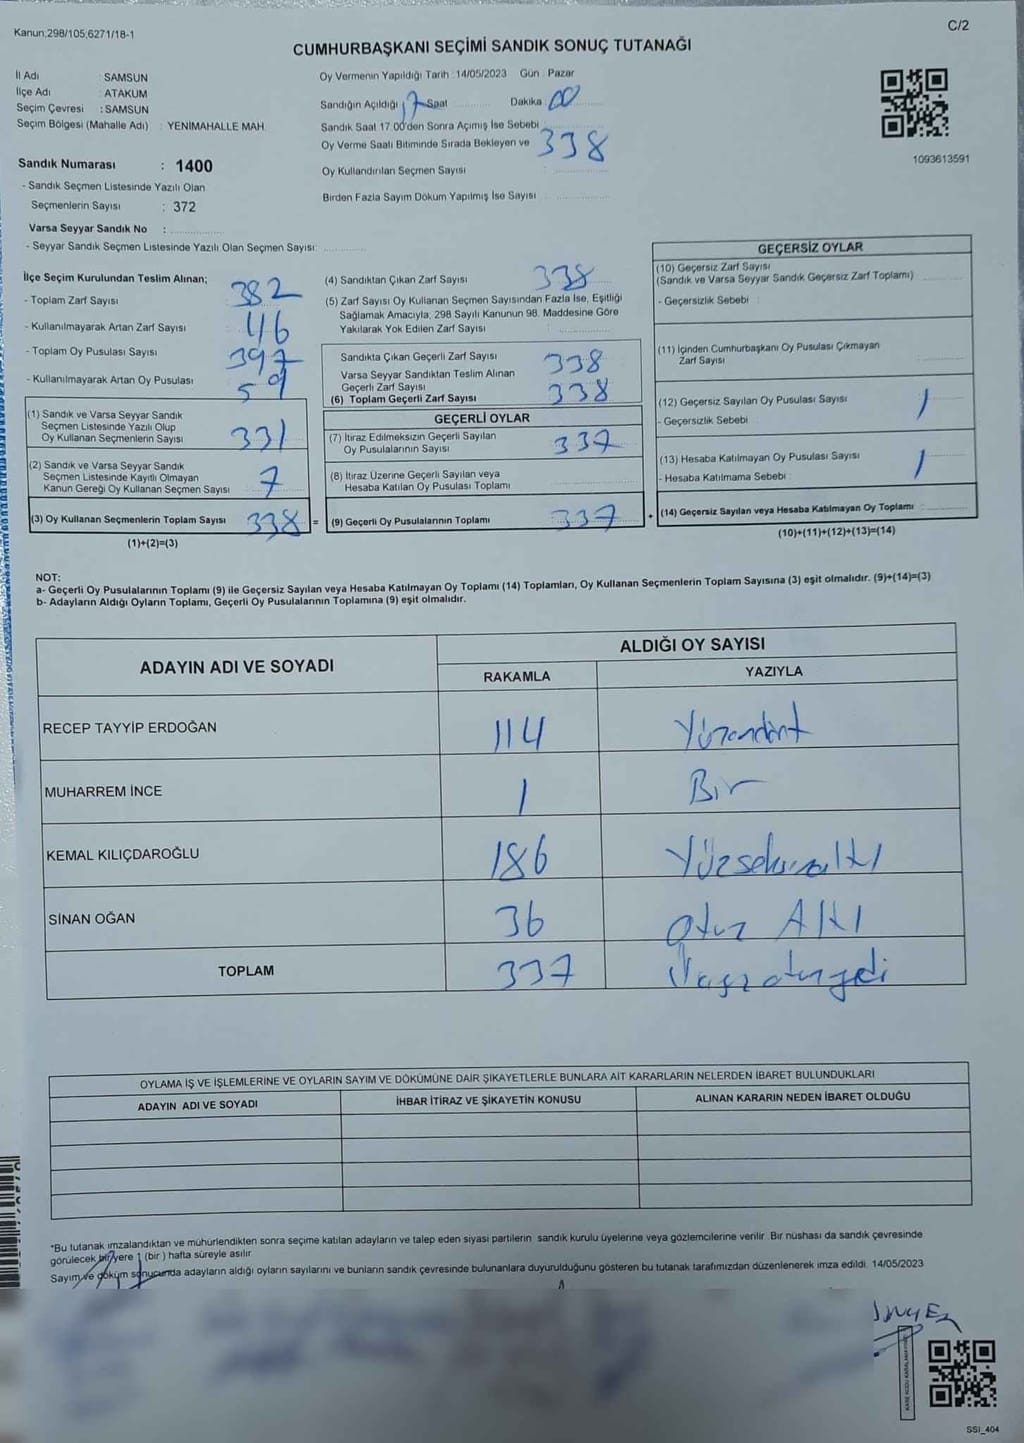 Kanun;298/105;6271/18-1
C/2
CUMHURBAŞKANI SEÇİMİ SANDIK SONUÇ TUTANAĞI
İl Adı : SAMSUN
İlçe Adı : ATAKUM
Seçim Çevresi : SAMSUN
Seçim Bölgesi (Mahalle Adı) : YENİMAHALLE MAH.
Sandık Numarası : 1400
- Sandık Seçmen Listesinde Yazılı Olan
Seçmenlerin Sayısı : 372
Varsa Seyyar Sandık No :
- Seyyar Sandık Seçmen Listesinde Yazılı Olan Seçmen Sayısı:
Oy Vermenin Yapıldığı Tarih : 14/05/2023 Gün : Pazar
Sandığın Açıldığı 17 Saat Dakika 00
Sandık Saat 17.00'den Sonra Açımış İse Sebebi
Oy Verme Saati Bitiminde Sırada Bekleyen ve 338
Oy Kullandırılan Seçmen Sayısı
Birden Fazla Sayım Döküm Yapılmış İse Sayısı
1093613591
İlçe Seçim Kurulundan Teslim Alınan;
- Toplam Zarf Sayısı 382
- Kullanılmayarak Artan Zarf Sayısı 46
- Toplam Oy Pusulası Sayısı 397
- Kullanılmayarak Artan Oy Pusulası 59
(1) Sandık ve Varsa Seyyar Sandık
Seçmen Listesinde Yazılı Olup
Oy Kullanan Seçmenlerin Sayısı 331
(2) Sandık ve Varsa Seyyar Sandık
Seçmen Listesinde Kayıtlı Olmayan
Kanun Gereği Oy Kullanan Seçmen Sayısı 7
(3) Oy Kullanan Seçmenlerin Toplam Sayısı 338 =
(1)+(2)=(3)
(4) Sandıktan Çıkan Zarf Sayısı 338
(5) Zarf Sayısı Oy Kullanan Seçmen Sayısından Fazla İse, Eşitliği
Sağlamak Amacıyla, 298 Sayılı Kanunun 98. Maddesine Göre
Yakılarak Yok Edilen Zarf Sayısı
Sandıkta Çıkan Geçerli Zarf Sayısı 338
Varsa Seyyar Sandıktan Teslim Alınan
Geçerli Zarf Sayısı
(6) Toplam Geçerli Zarf Sayısı 338
GEÇERLİ OYLAR
(7) İtiraz Edilmeksizin Geçerli Sayılan
Oy Pusulalarının Sayısı 337
(8) İtiraz Üzerine Geçerli Sayılan veya
Hesaba Katılan Oy Pusulası Toplamı
(9) Geçerli Oy Pusulalarının Toplamı 337 +
GEÇERSİZ OYLAR
(10) Geçersiz Zarf Sayısı
(Sandık ve Varsa Seyyar Sandık Geçersiz Zarf Toplamı)
- Geçersizlik Sebebi :
(11) İçinden Cumhurbaşkanı Oy Pusulası Çıkmayan
Zarf Sayısı
(12) Geçersiz Sayılan Oy Pusulası Sayısı 1
- Geçersizlik Sebebi
(13) Hesaba Katılmayan Oy Pusulası Sayısı 1
- Hesaba Katılmama Sebebi
(14) Geçersiz Sayılan veya Hesaba Katılmayan Oy Toplamı
(10)+(11)+(12)+(13)=(14)
NOT:
a- Geçerli Oy Pusulalarının Toplamı (9) ile Geçersiz Sayılan veya Hesaba Katılmayan Oy Toplamı (14) Toplamları, Oy Kullanan Seçmenlerin Toplam Sayısına (3) eşit olmalıdır. (9)+(14)=(3)
b- Adayların Aldığı Oyların Toplamı, Geçerli Oy Pusulalarının Toplamına (9) eşit olmalıdır.
ADAYIN ADI VE SOYADI
ALDIĞI OY SAYISI
RAKAMLA YAZIYLA
RECEP TAYYİP ERDOĞAN 114 Yüzondört
MUHARREM İNCE 1 Bir
KEMAL KILIÇDAROĞLU 186
SİNAN OĞAN 36 otuz Altı
TOPLAM 337
OYLAMA İŞ VE İŞLEMLERİNE VE OYLARIN SAYIM VE DÖKÜMÜNE DAİR ŞİKAYETLERLE BUNLARA AİT KARARLARIN NELERDEN İBARET BULUNDUKLARI
ADAYIN ADI VE SOYADI İHBAR İTİRAZ VE ŞİKAYETİN KONUSU ALINAN KARARIN NEDEN İBARET OLDUĞU
*Bu tutanak imzalandıktan ve mühürlendikten sonra seçime katılan adayların ve talep eden siyasi partilerin sandık kurulu üyelerine veya gözlemcilerine verilir. Bir nüshası da sandık çevresinde
görülecek bir yere 1 (bir ) hafta süreyle asılır.
Sayım ve döküm sonucunda adayların aldığı oyların sayılarını ve bunların sandık çevresinde bulunanlara duyurulduğunu gösteren bu tutanak tarafımızdan düzenlenerek imza edildi. 14/05/2023
SSI_404